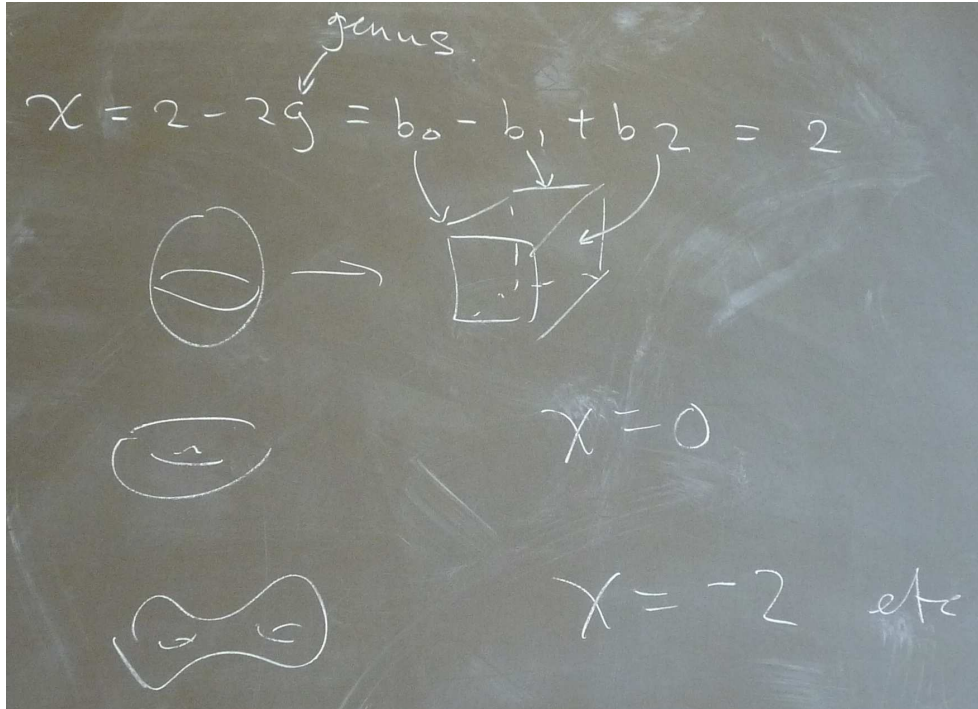 genus
χ = 2 - 2g = b₀ - b₁ + b₂ = 2
χ = 0
χ = -2 etc